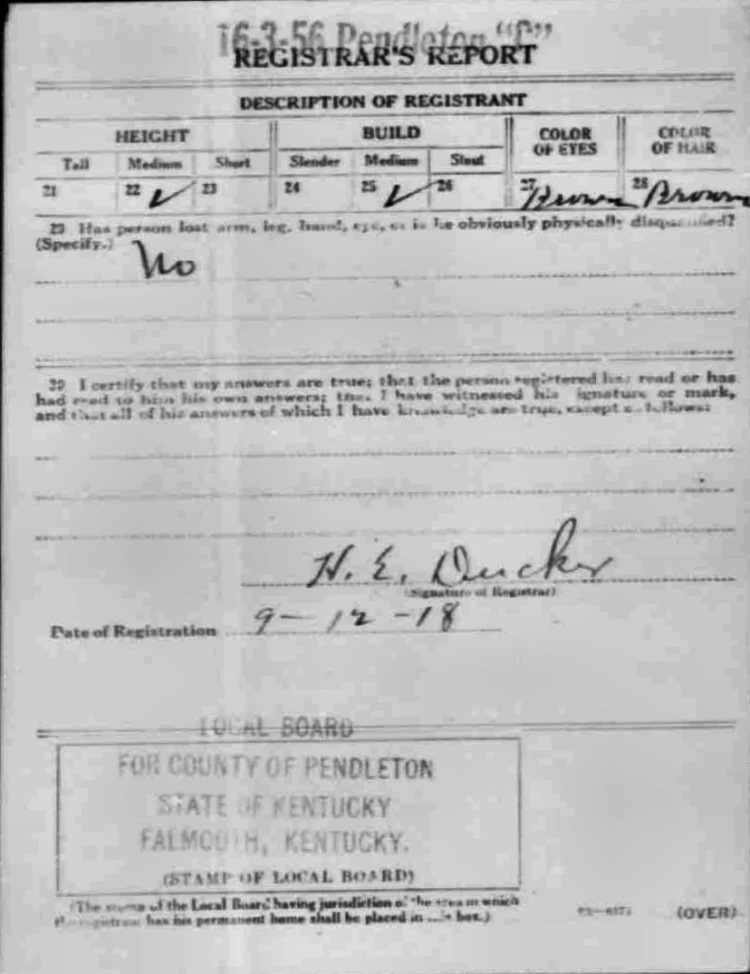 16-3-56 Pendleton "C"
REGISTRAR'S REPORT
DESCRIPTION OF REGISTRANT
HEIGHT BUILD COLOR OF EYES COLOR OF HAIR
Tall Medium Short Slender Medium Stout
21 22 ✓ 23 24 25 ✓ 26 27 Brown 28 Brown
29 Has person lost arm, leg, hand, eye, or is he obviously physically disqualified?
(Specify.) No
30 I certify that my answers are true; that the person registered has read or has
had read to him his own answers; that I have witnessed his signature or mark,
and that all of his answers of which I have knowledge are true, except as follows:
H. E. Ducker
(Signature of Registrar)
Date of Registration 9-12-18
LOCAL BOARD
FOR COUNTY OF PENDLETON
STATE OF KENTUCKY
FALMOUTH, KENTUCKY.
(STAMP OF LOCAL BOARD)
(The stamp of the Local Board having jurisdiction of the area in which
the registrant has his permanent home shall be placed in this box.)
(OVER)